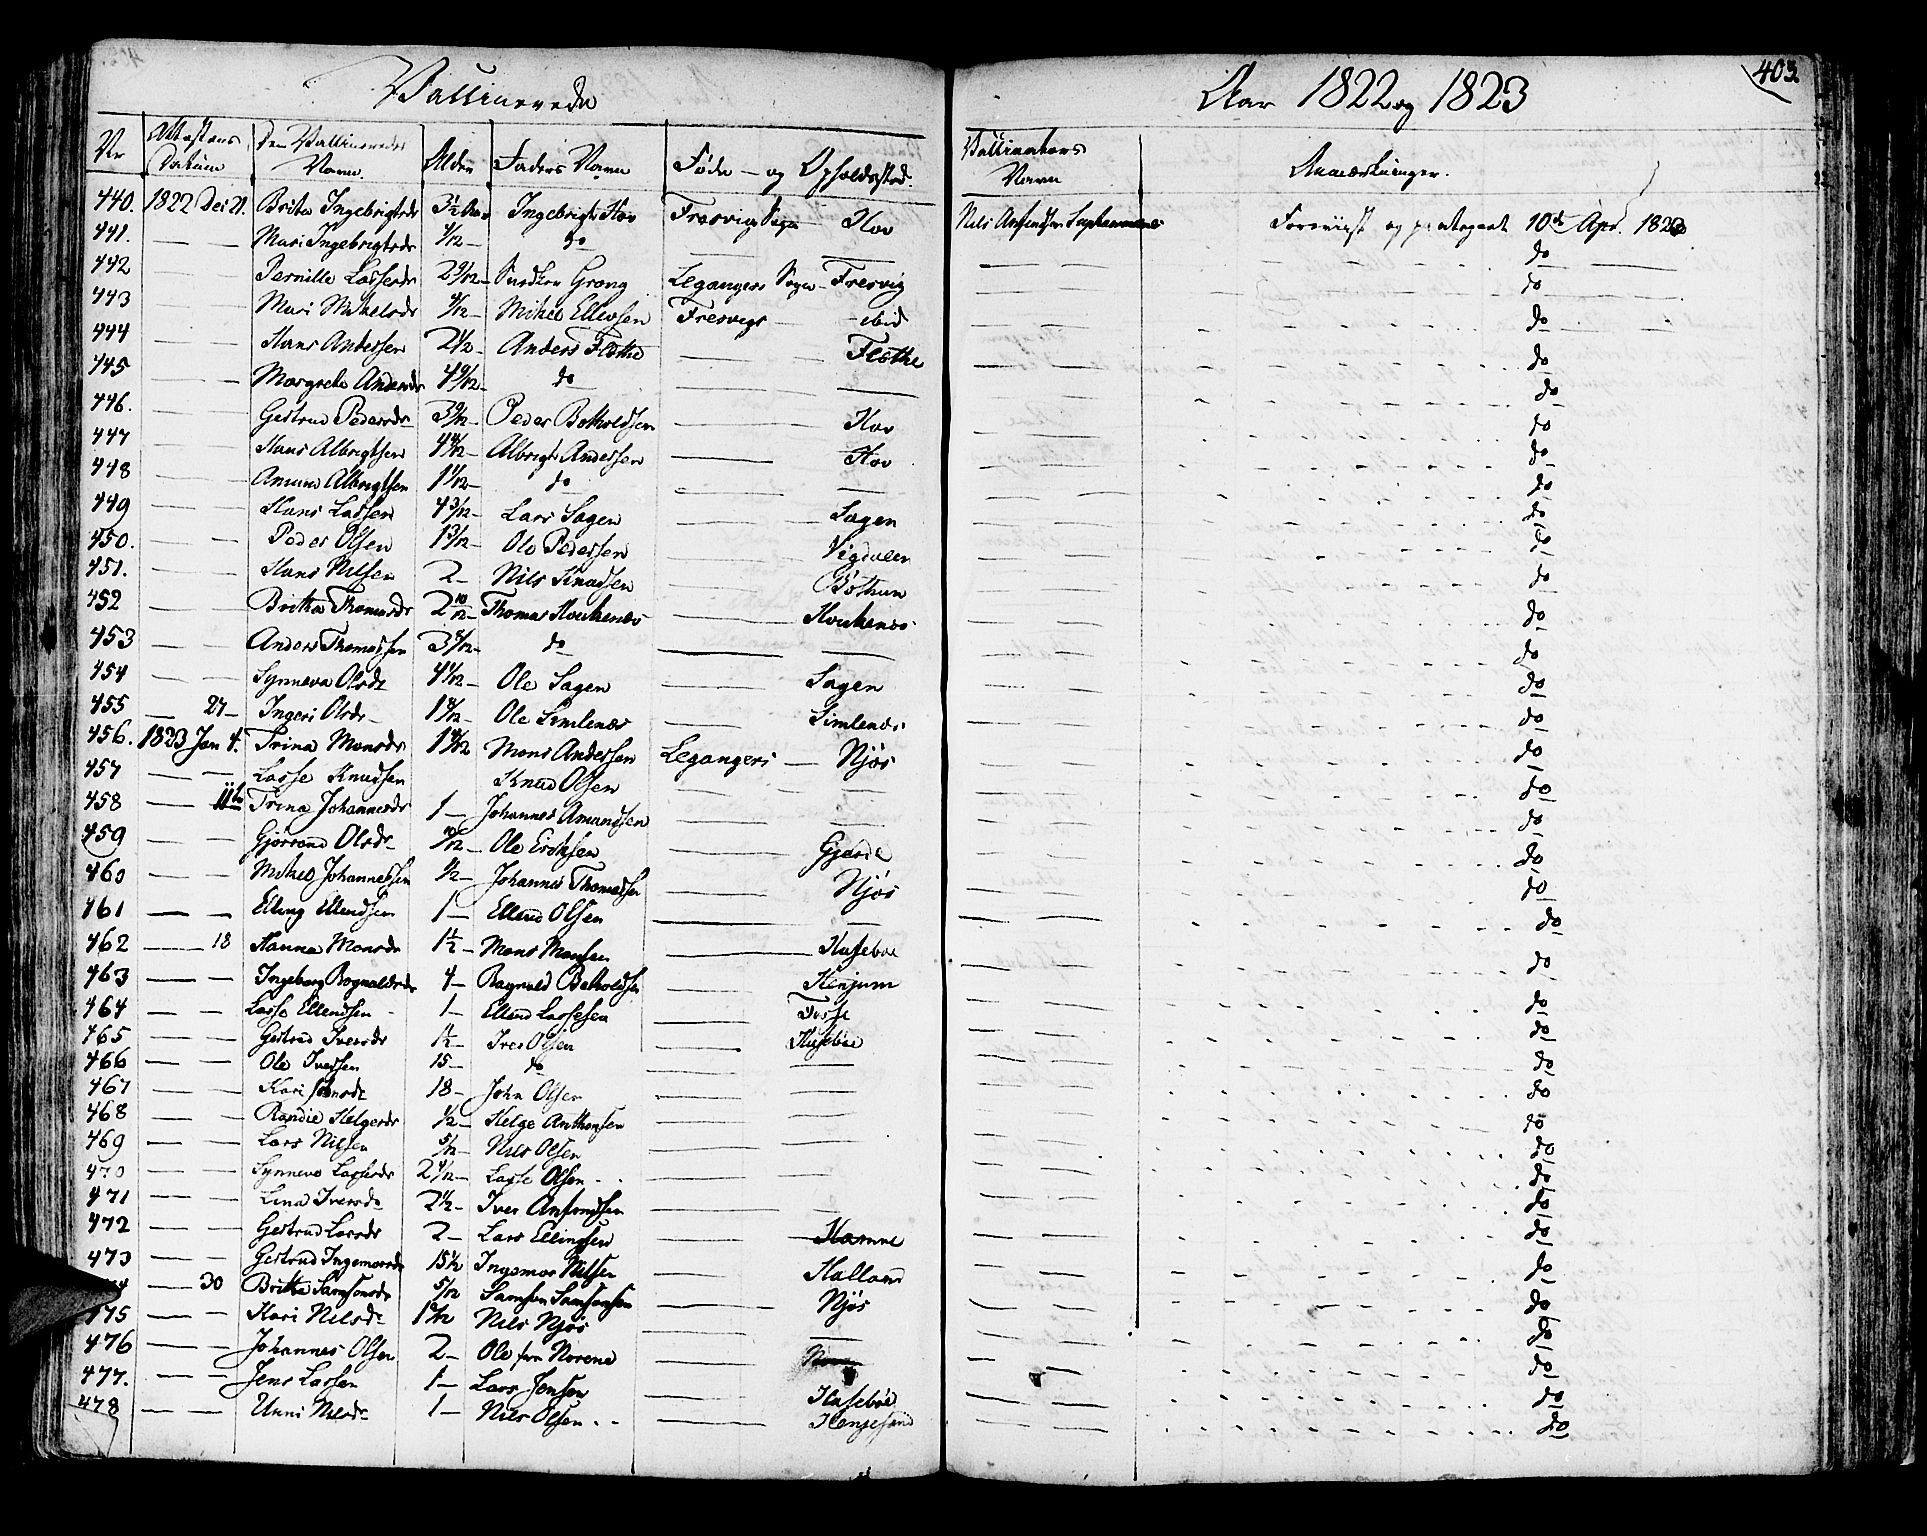 Vaccinerede Aar 1822 og 1823 403
Nr Attestens Datum Den Vaccineredes Navn. Alder Faders Navn Føde – og Opholdssted. Vaccinateurs Navn Anmærkninger.
440. 1822 Dec 21. Brita Ingebrigtsdr 3½ Aar Ingebrigt Hov Fresvigs Sogn Hov Nils 10de Apr. 1823
441. — — Mari Ingebrigtsdr 4/12 — do — — do
442 — — Pernille Lassesdr 2 9/12 — Grong Legangers Sogn – Fresvig do
443 — — Mari Mikelsdr 4/12 — Mikel Ellevsen Fresvigs — ibid do
444 — — Hans Andersen 2 1/12 — Anders Flöthe — Flöthe do
445 — — Margrethe Andersdr 4 9/12 — do — — do
446. — — Gertrud Pedersdr 3 9/12 — Peder Botholdsen — Hov do
447 — — Hans Albrigtsen 4 4/12 — Albrigt Andersen — Hov do
448 — — Amund Albrigtsen 1 1/12 — do — — do
449 — — Hans Larsen 4 3/12 — Lars Sagen — Sagen do
450. — — Peder Olsen 1 3/12 — Ole Pedersen — Vigdalen do
451. — — Hans Nilsen 2 — Nils Knudsen — Böthun do
452 — — Britha Thomasdr 2 10/12 — Thomas Hvithenæs — Hvithenæs do
453 — — Anders Thomassen 3 8/12 — do — — do
454 — — Synneva Olsdr 4 1/12 — Ole Sagen — Sagen do
455 — 27 — Ingeri Olsdr 1 8/12 — Ole Simlenæs — Simlenæs do
456. 1823 Jan 4. Trina Monsdr 1 4/12 Mons Andersen Legangers — Njøs do
457 — — Lasse Knudsen Knud Olsen — — do
458 — 11te Trina Johannesdr 1 — Johannes Amundsen — — do
459 — — Gjörond Olsdr 10/12 — Ole Ericksen — Gjerde do
460 — — Mikel Johannessen ½ — Johannes Thomassen — Njøs do
461 — — Elling Ellendsen 1 — Ellend Olsen — — do
462 — 18 Hanna Monsdr 1½ — Mons Monsen — Husebøe do
463 — — Ingeborg Rognaldsdr 4 — Ragnald Botholdsen — Henjum do
464 — — Lasse Ellendsen 1 — Ellend Lassesen — do
465 — — Gertrud Iversdr 1½ — Iver Olsen — Husebøe do
466 — — Ole Iversen 15 — do — — do
467 — — Kari Johnsdr 18 — John Olsen — — do
468 — — Randie Helgesdr ½ — Helge Anthonsen — — do
469 — — Lars Nilsen 5/12 — Nils Olsen do
470 — — Synneva Lassesdr 2 4/12 — Lasse Olsen do
471 — — Lena Iversdr 2½ — Iver Anfindsen — — do
472 — — Gertrud Larsdr 2 — Lars Ellingsen — Hamne do
473 — — Gertrud Ingemarsdr 15½ Ingemar Nilsen — Halland do
— 30 Britha Samsonsdr 5/12 Samson Samsonsen — Njøs do
475 — — Kari Nilsdr Nils Njøs — — do
476 — — Johannes Olsen 2 — Ole fra Norene — do
477. — — Jens Larsen 1 — Lars Jensen — Husebøe do
478 — — Unni Nilsdr 1 — Nils Olsen — do